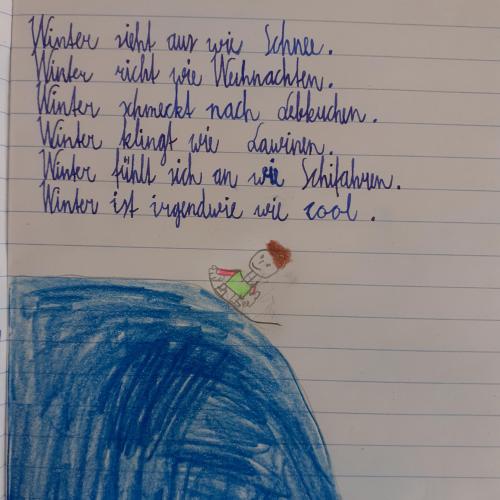 Winter sieht aus wie Schnee.
Winter richt wie Weihnachten.
Winter schmeckt nach Lebkuchen.
Winter klingt wie Lawinen.
Winter fühlt sich an wie Schifahren.
Winter ist irgendwie wie cool.